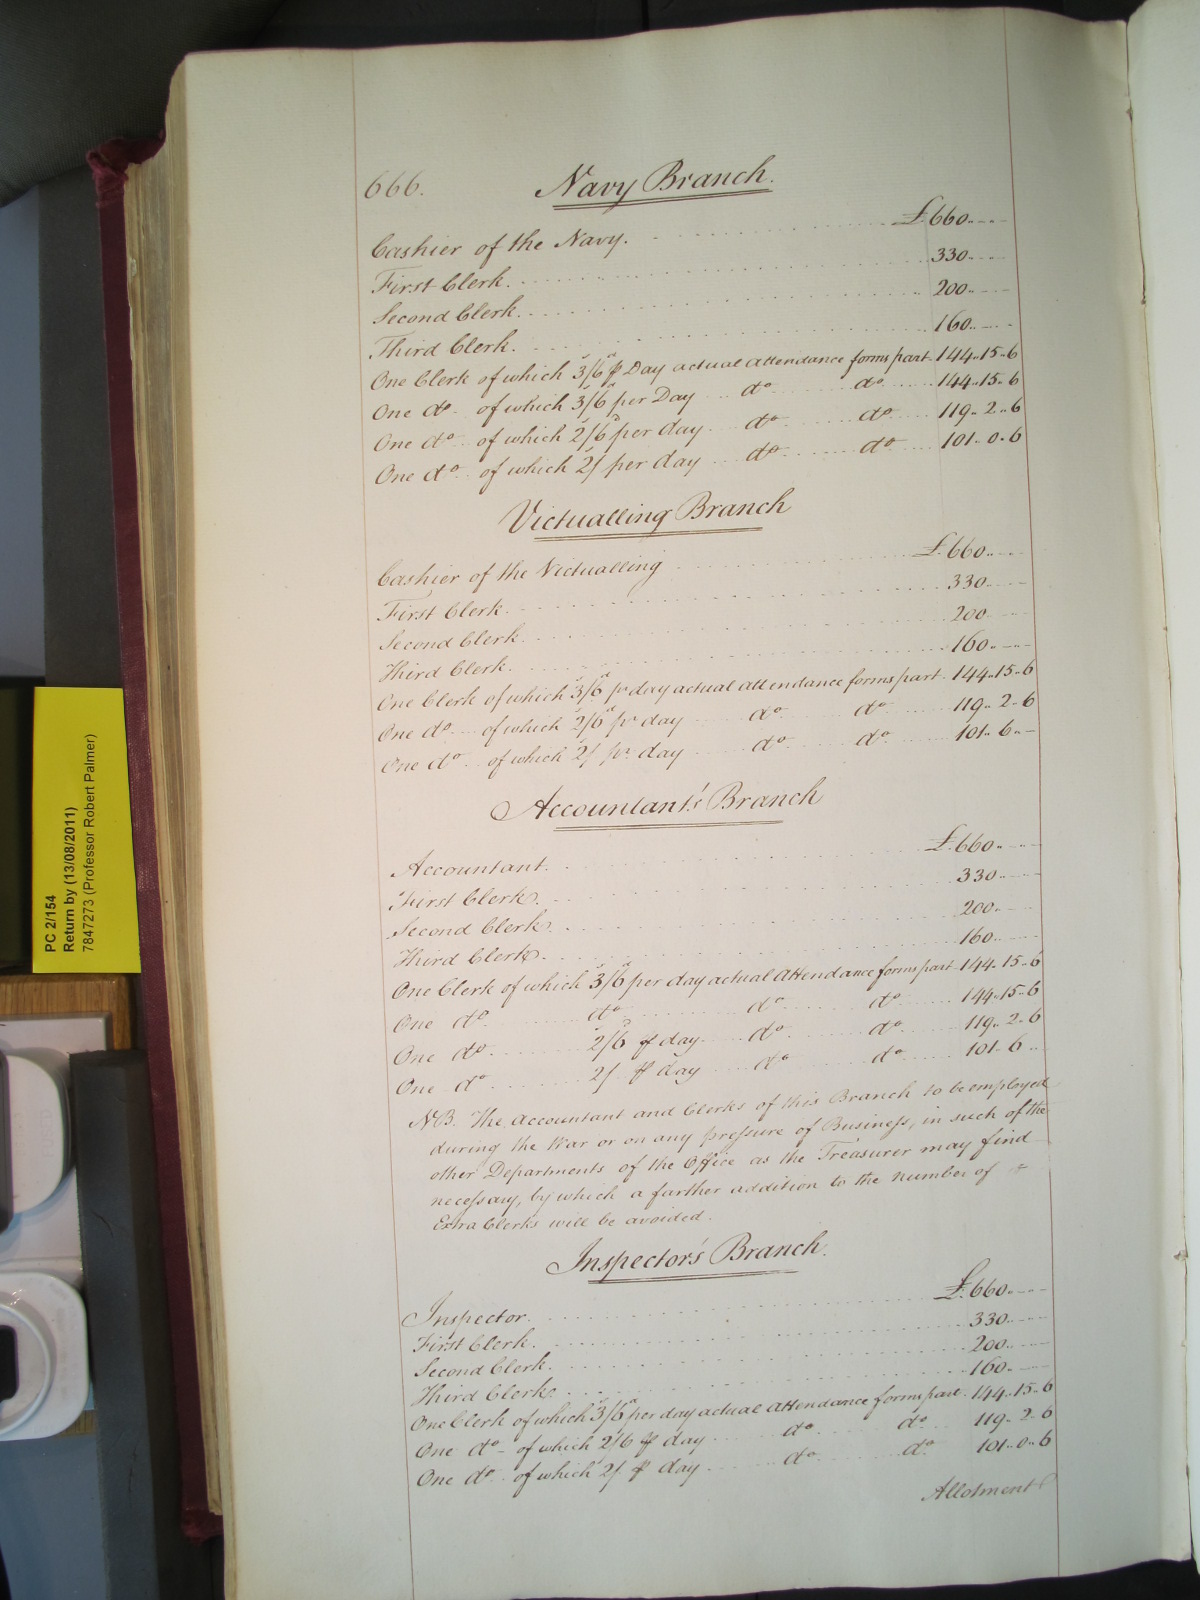 666.
Navy Branch.
Cashier of the Navy. £660..
First Clerk. 330..
Second Clerk. 200..
Third Clerk. 160..
One Clerk of which 3s/6d p Day actual attendance forms part 144..15..6
One do of which 3s/6d per Day do do 144..15..6
One do of which 2s/6d per day do do 119..2..6
One do of which 2s/ per day do do 101..0..6
Victualling Branch
Cashier of the Victualling £660..
First Clerk. 330..
Second Clerk. 200
Third Clerk. 160..
One Clerk of which 3s/6d pr day actual attendance forms part 144..15..6
One do of which 2s/6d pr day do do 119..2..6
One do of which 2s/ pr day do do 101..6..
Accountant's Branch
Accountant. £660..
First Clerk. 330..
Second Clerk. 200..
Third Clerk. 160..
One Clerk of which 3s/6d per day actual Attendance forms part 144..15..6
One do do do do 144..15..6
One do 2s/6d p day do do 119..2..6
One do 2/ p day do do 101..6..
NB. The Accountant and Clerks of this Branch to be employed
during the War or on any pressure of Business, in such of the
other Departments of the Office as the Treasurer may find
necessary, by which a farther addition to the number of
Extra Clerks will be avoided.
Inspector's Branch.
Inspector. £660..
First Clerk. 330..
Second Clerk. 200..
Third Clerk. 160..
One Clerk of which 3s/6d per day actual attendance forms part 144..15..6
One do of which 2s/6 p day do do 119..2..6
One do of which 2s/ p day do do 101..0..6
Allotment
PC 2/154
Return by (13/08/2011)
7847273 (Professor Robert Palmer)